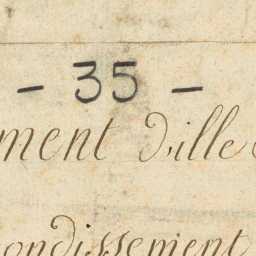 - 35 -
ment d'ille
ondissement